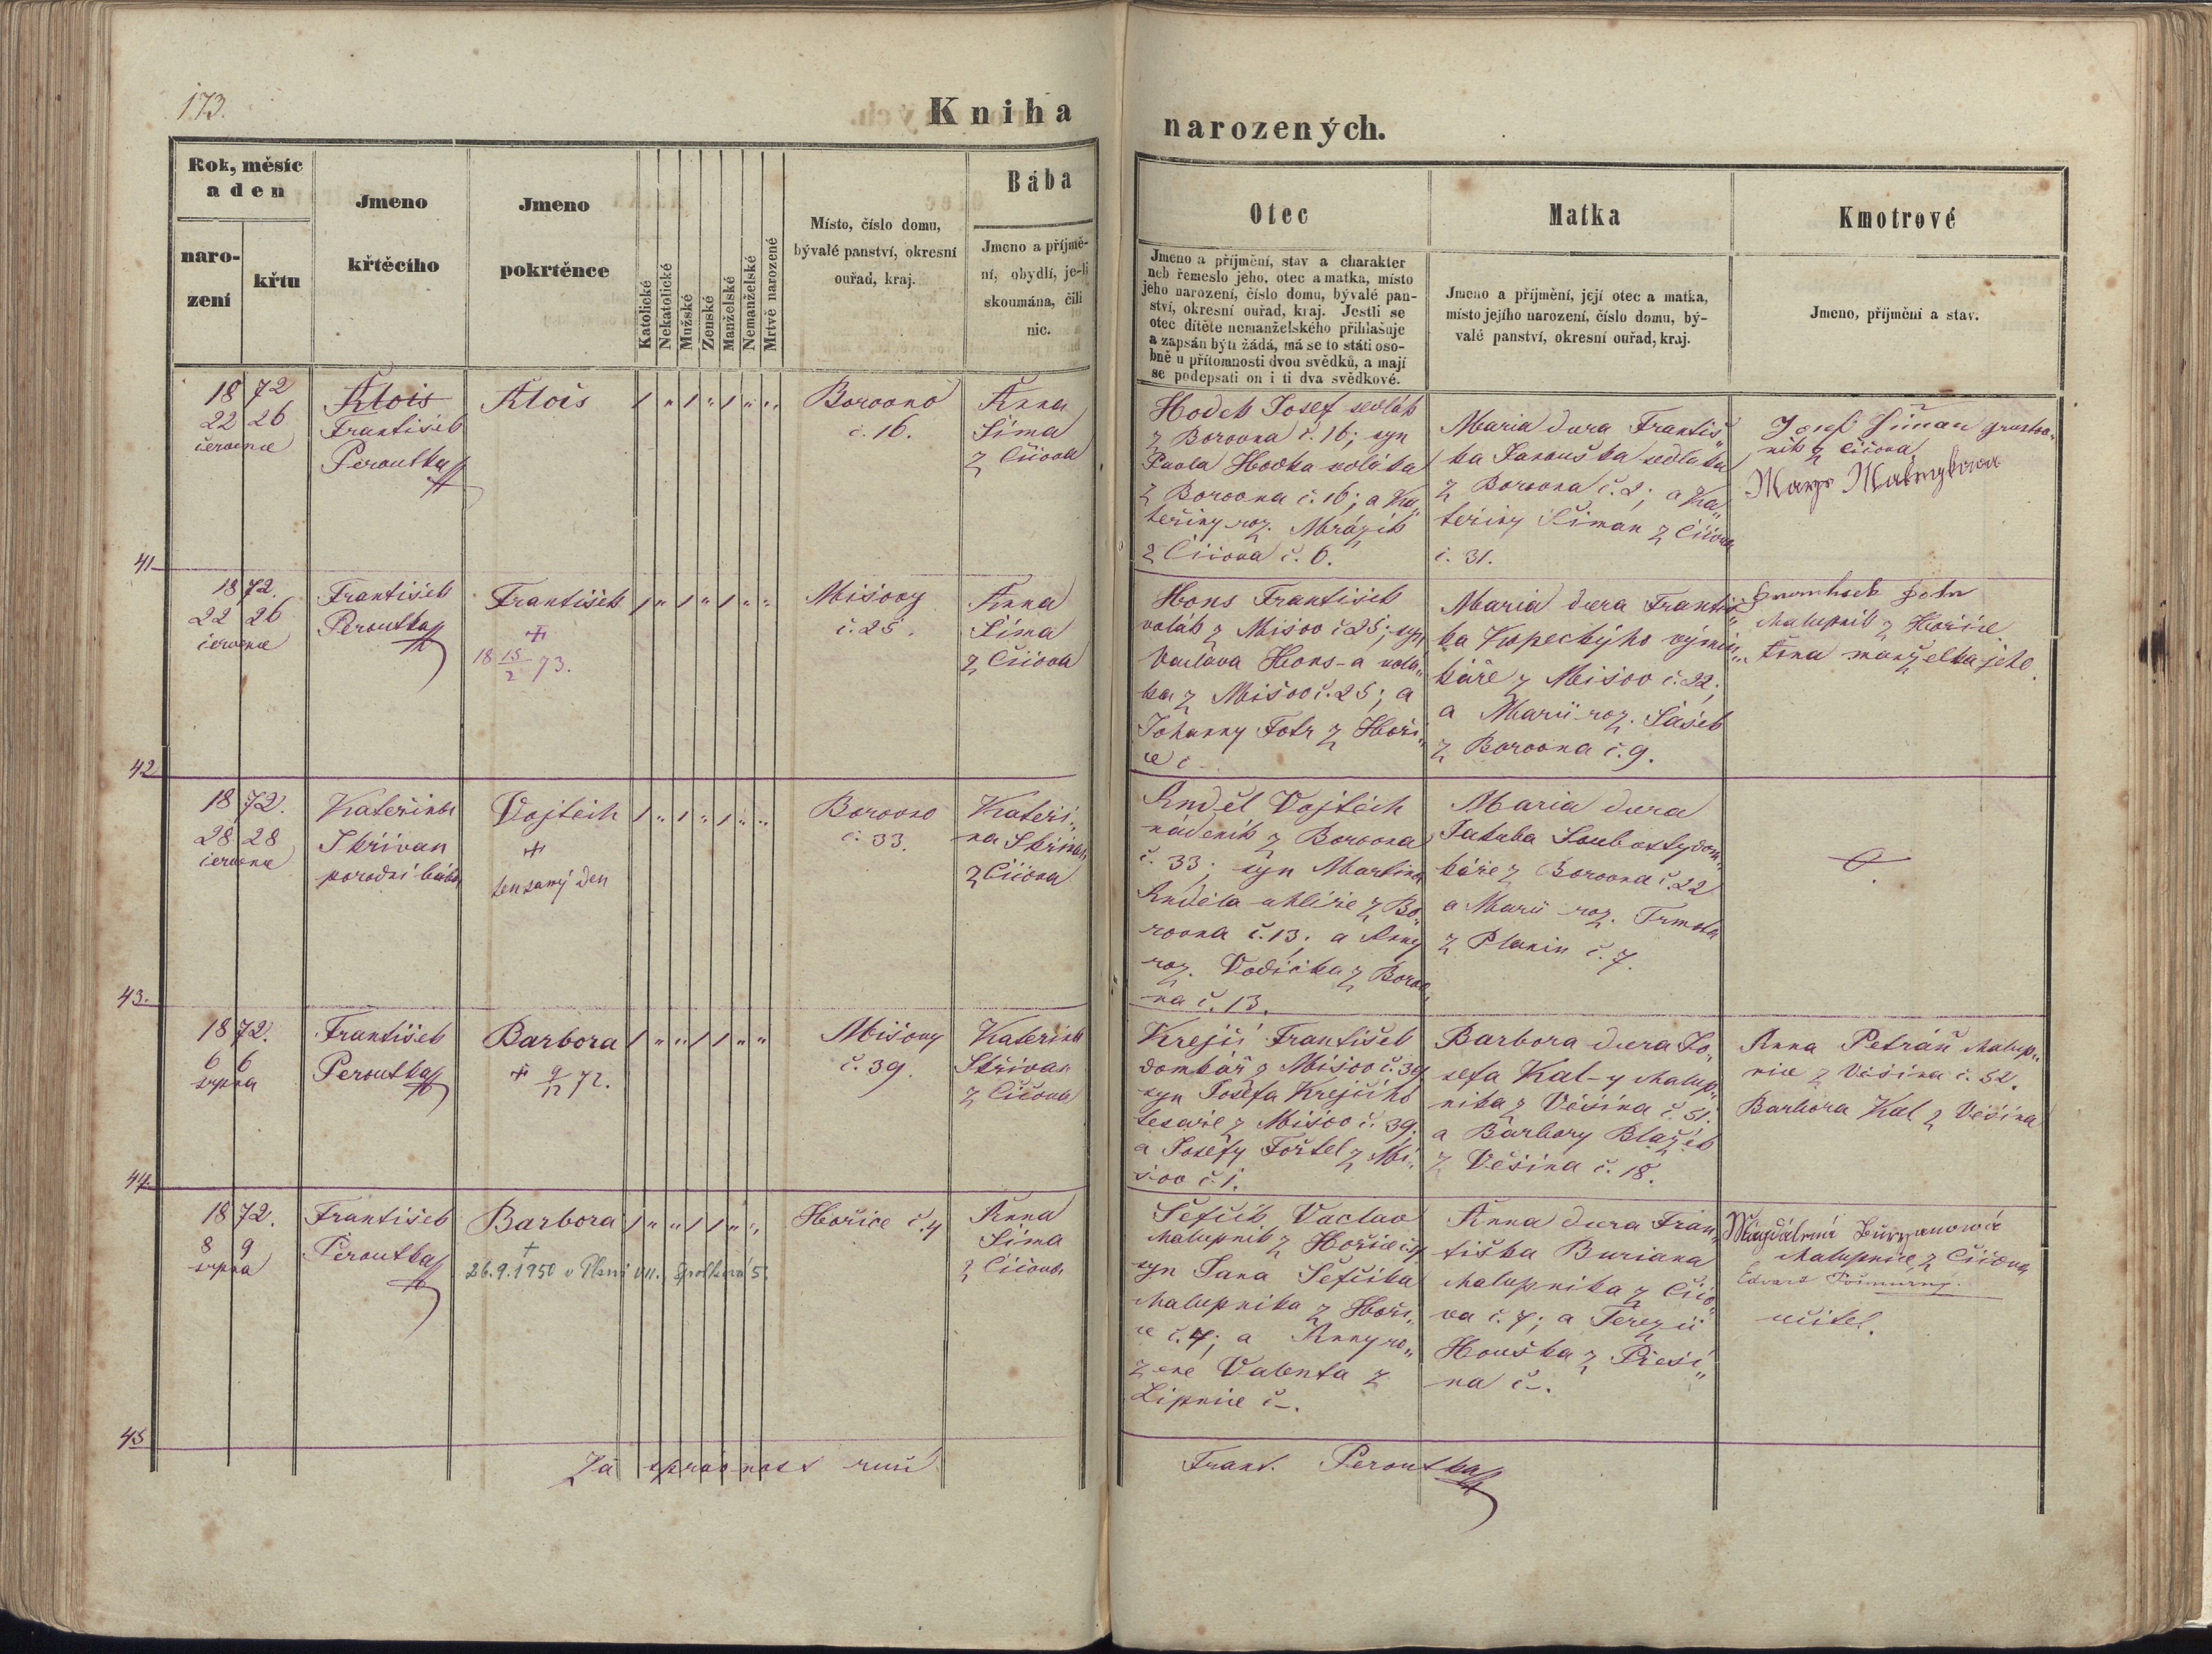 173.
Kniha
narozených.
Rok, měsíc
a den
naro-
zení
křtu
Jmeno
křtěcího
Jmeno
pokrtěnce
Katolické
Nekatolické
Mužské
Zenské
Manželské
Nemanželské
Mrtvě narozené
Místo, číslo domu,
bývalé panství, okresní
ouřad, kraj.
Bába
Jmeno a příjmě-
ní, obydlí, je-li
skoumána, čili
nic.
Otec
Jmeno a příjmění, stav a charakter
neb řemeslo jeho, otec a matka, místo
jeho narození, číslo domu, bývalé pan-
ství, okresní ouřad, kraj. Jestli se
otec dítěte nemanželského přihlašuje
a zapsán býti žádá, má se to státi oso-
bně u přítomnosti dvou svědků, a mají
se podepsati on i ti dva svědkové.
Matka
Jmeno a příjmění, její otec a matka,
místo jejího narození, číslo domu, bý-
valé panství, okresní ouřad, kraj.
Kmotrové
Jmeno, příjmění a stav.
1872
22 26
července
Alois
František
Peroutka
Alois
Borovno
č. 16.
Anna
Šíma
z Čičova
Hodek Josef sedlák
z Borovna č. 16; syn
Pavla Hodka sedláka
z Borovna č. 16; a Ka„
teřiny roz. Mrázek
z Čičova č. 6.
Maria dcera Františ„
ka Janouška sedláka
z Borovna č. 2; a Ka„
teřiny Šiman z Čičova
č. 31.
Josef Šiman
z Čičova
41
1872.
22 26
července
František
Peroutka
František
+
18 15/2 73.
Mišovy
č. 25.
Anna
Šíma
z Čičova
Hons František
sedlák z Mišov č 25; syn
Vaclava Hons-a sedlá„
ka z Mišov č. 25; a
Johanny Fotr z Hoři„
ce č
Maria dcera Františ„
ka Kopeckýho výmin„
káře z Mišov č. 22;
a Marii roz. Šašek
z Borovna č. 9.
chalupník z Hořice
manželka jeho.
42
1872.
28 28
července
Kateřina
Skřivan
porodní bába
Vojtěch
+
ten samý den
Borovno
č. 33.
Kateři„
na Skřivan
z Čičova
Anděl Vojtěch
nádeník z Borovna
č. 33; syn Martina
Anděla uhlíře z Bo„
rovna č. 13; a Anny
roz. Vodička z Borov„
na č. 13.
Maria dcera
Jakuba Soubusty dom„
káře z Borovna č. 22
a Marii roz. Trmota
z Planin č. 7.
43.
1872.
6 6
srpna
František
Peroutka
Barbora
+ 9/12 72.
Mišovy
č. 39.
Kateřina
Skřivan
z Čičova
Krejčí František
domkář z Mišov č. 39
syn Josefa Krejčího
tesaře z Mišov č. 39.
a Josefy Fořtel z Mi„
šov č. 1.
Barbora dcera Jo„
sefa Kal-y chalup„
níka z Věšína č. 51.
a Barbory Blažek
z Věšína č. 18.
Anna Petráň chalup„
nice z Věšína č. 52.
Barbora Kal z Věšína
44
1872.
8 9
srpna
František
Peroutka
Barbora
+
26.9.1950 v Plzni VII., Spolková 5.
Hořice č. 4
Anna
Šíma
z Čičova
Šefčík Vaclav
chalupník z Hořice č. 4
syn Jana Šefčíka
chalupníka z Hoři„
ce č. 4; a Anny ro„
zené Valenta z
Lipnice č –.
Anna dcera Fran„
tiška Buriana
chalupníka z Čičo„
va č. 7; a Terezii
Houška z Přeši„
na č –.
Magdaléna Buryanová
chalupnice z Čičova
učitel.
45
Za správnost ručí
Frant. Peroutka